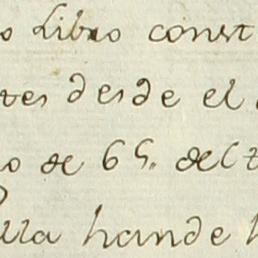 o Libro const
tes desde el
o de 65. del
lla han de